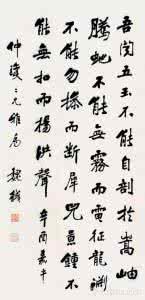 吾闻五玉不能自剖於嵩岫
腾蛇不能无雾而电征龙渊
不能勿操而断犀兕景钟不
能无扣而扬洪声 辛酉嘉平
仲
二兄雅属 魏戫